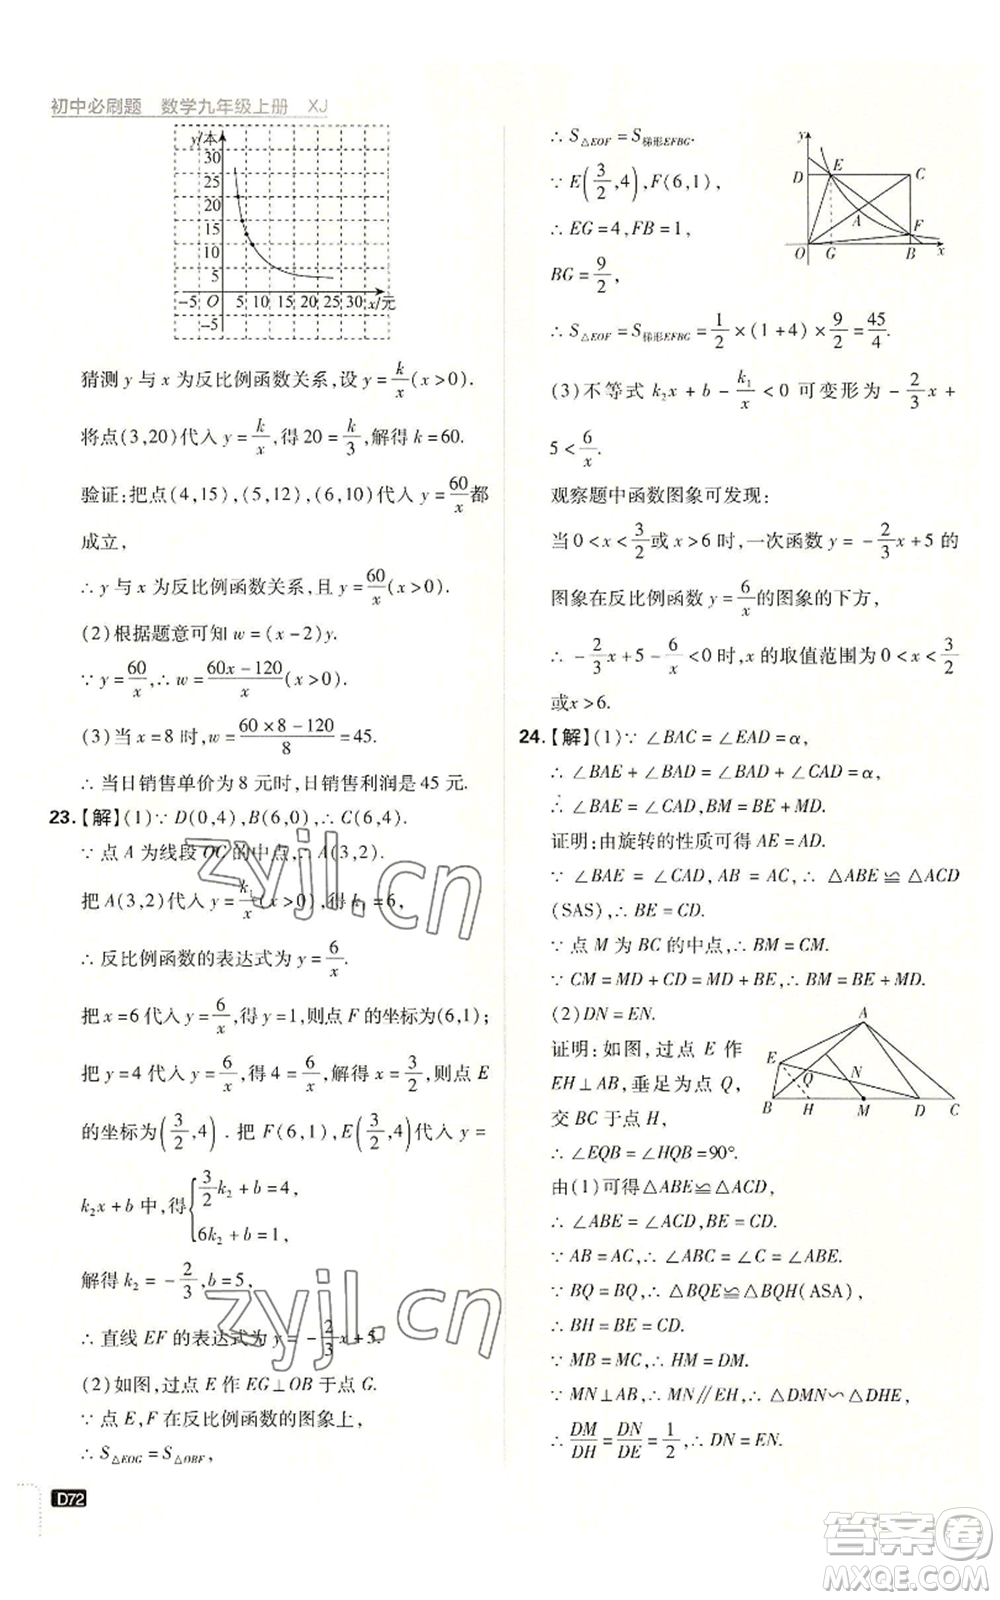 初中必刷题 数学九年级上册 XJ
y/本
30
25
20
15
10
5
-5 O 5 10 15 20 25 30 x/元
-5
猜测 y 与 x 为反比例函数关系,设 y=k/x(x>0).
将点(3,20)代入 y=k/x,得 20=k/3,解得 k=60.
验证:把点(4,15),(5,12),(6,10)代入 y=60/x都
成立,
∴ y 与 x 为反比例函数关系,且 y=60/x(x>0).
(2)根据题意可知 w=(x-2)y.
∵ y=60/x,∴ w=(60x-120)/x(x>0).
(3)当 x=8 时,w=(60×8-120)/8=45.
∴ 当日销售单价为 8 元时,日销售利润是 45 元.
23.【解】(1)∵ D(0,4),B(6,0),∴ C(6,4).
∵ 点 A 为线段 OC 的中点,∴ A(3,2).
把 A(3,2)代入 y=k₁/x(x>0),得 k₁=6,
∴ 反比例函数的表达式为 y=6/x.
把 x=6 代入 y=6/x,得 y=1,则点 F 的坐标为(6,1);
把 y=4 代入 y=6/x,得 x=3/2,则点 E
的坐标为(3/2,4). 把 F(6,1),E(3/2,4)代入 y=
k₂x+b 中,得{3/2k₂+b=4,
6k₂+b=1,
解得 k₂=-2/3,b=5,
∴ 直线 EF 的表达式为 y=-2/3x+5.
(2)如图,过点 E 作 EG⊥OB 于点 G.
∵ 点 E,F 在反比例函数的图象上,
∴ S△EOG=S△OBF,
D72
∴ S△EOF=S梯形EFBG.
∵ E(3/2,4),F(6,1),
∴ EG=4,FB=1,
BG=9/2,
y
D E C
A
F
O G B x
∴ S△EOF=S梯形EFBG=1/2×(1+4)×9/2=45/4.
(3)不等式 k₂x+b-k₁/x<0 可变形为 -2/3x+
5<6/x.
观察题中函数图象可发现:
当 0<x<3/2或 x>6 时,一次函数 y=-2/3x+5 的
图象在反比例函数 y=6/x的图象的下方,
∴ -2/3x+5-6/x<0 时,x 的取值范围为 0<x<3/2
或x>6.
24.【解】(1)∵ ∠BAC=∠EAD=α,
∴ ∠BAE+∠BAD=∠BAD+∠CAD=α,
∴ ∠BAE=∠CAD,BM=BE+MD.
证明:由旋转的性质可得 AE=AD.
∵ ∠BAE=∠CAD,AB=AC,∴ △ABE≌△ACD
(SAS),∴ BE=CD.
∵ 点 M 为 BC 的中点,∴ BM=CM.
∵ CM=MD+CD=MD+BE,∴ BM=BE+MD.
(2)DN=EN.
证明:如图,过点 E 作
EH⊥AB,垂足为点 Q,
交 BC 于点 H,
A
E
Q N
B H M D C
∴ ∠EQB=∠HQB=90°.
由(1)可得△ABE≌△ACD,
∴ ∠ABE=∠ACD,BE=CD.
∵ AB=AC,∴ ∠ABC=∠C=∠ABE.
∵ BQ=BQ,∴ △BQE≌△BQH(ASA),
∴ BH=BE=CD.
∵ MB=MC,∴ HM=DM.
∵ MN⊥AB,∴ MN∥EH,∴ △DMN∽△DHE,
∴ DM/DH=DN/DE=1/2,∴ DN=EN.
zyjl.cn
zyjl.cn
答案卷
MXQE.COM